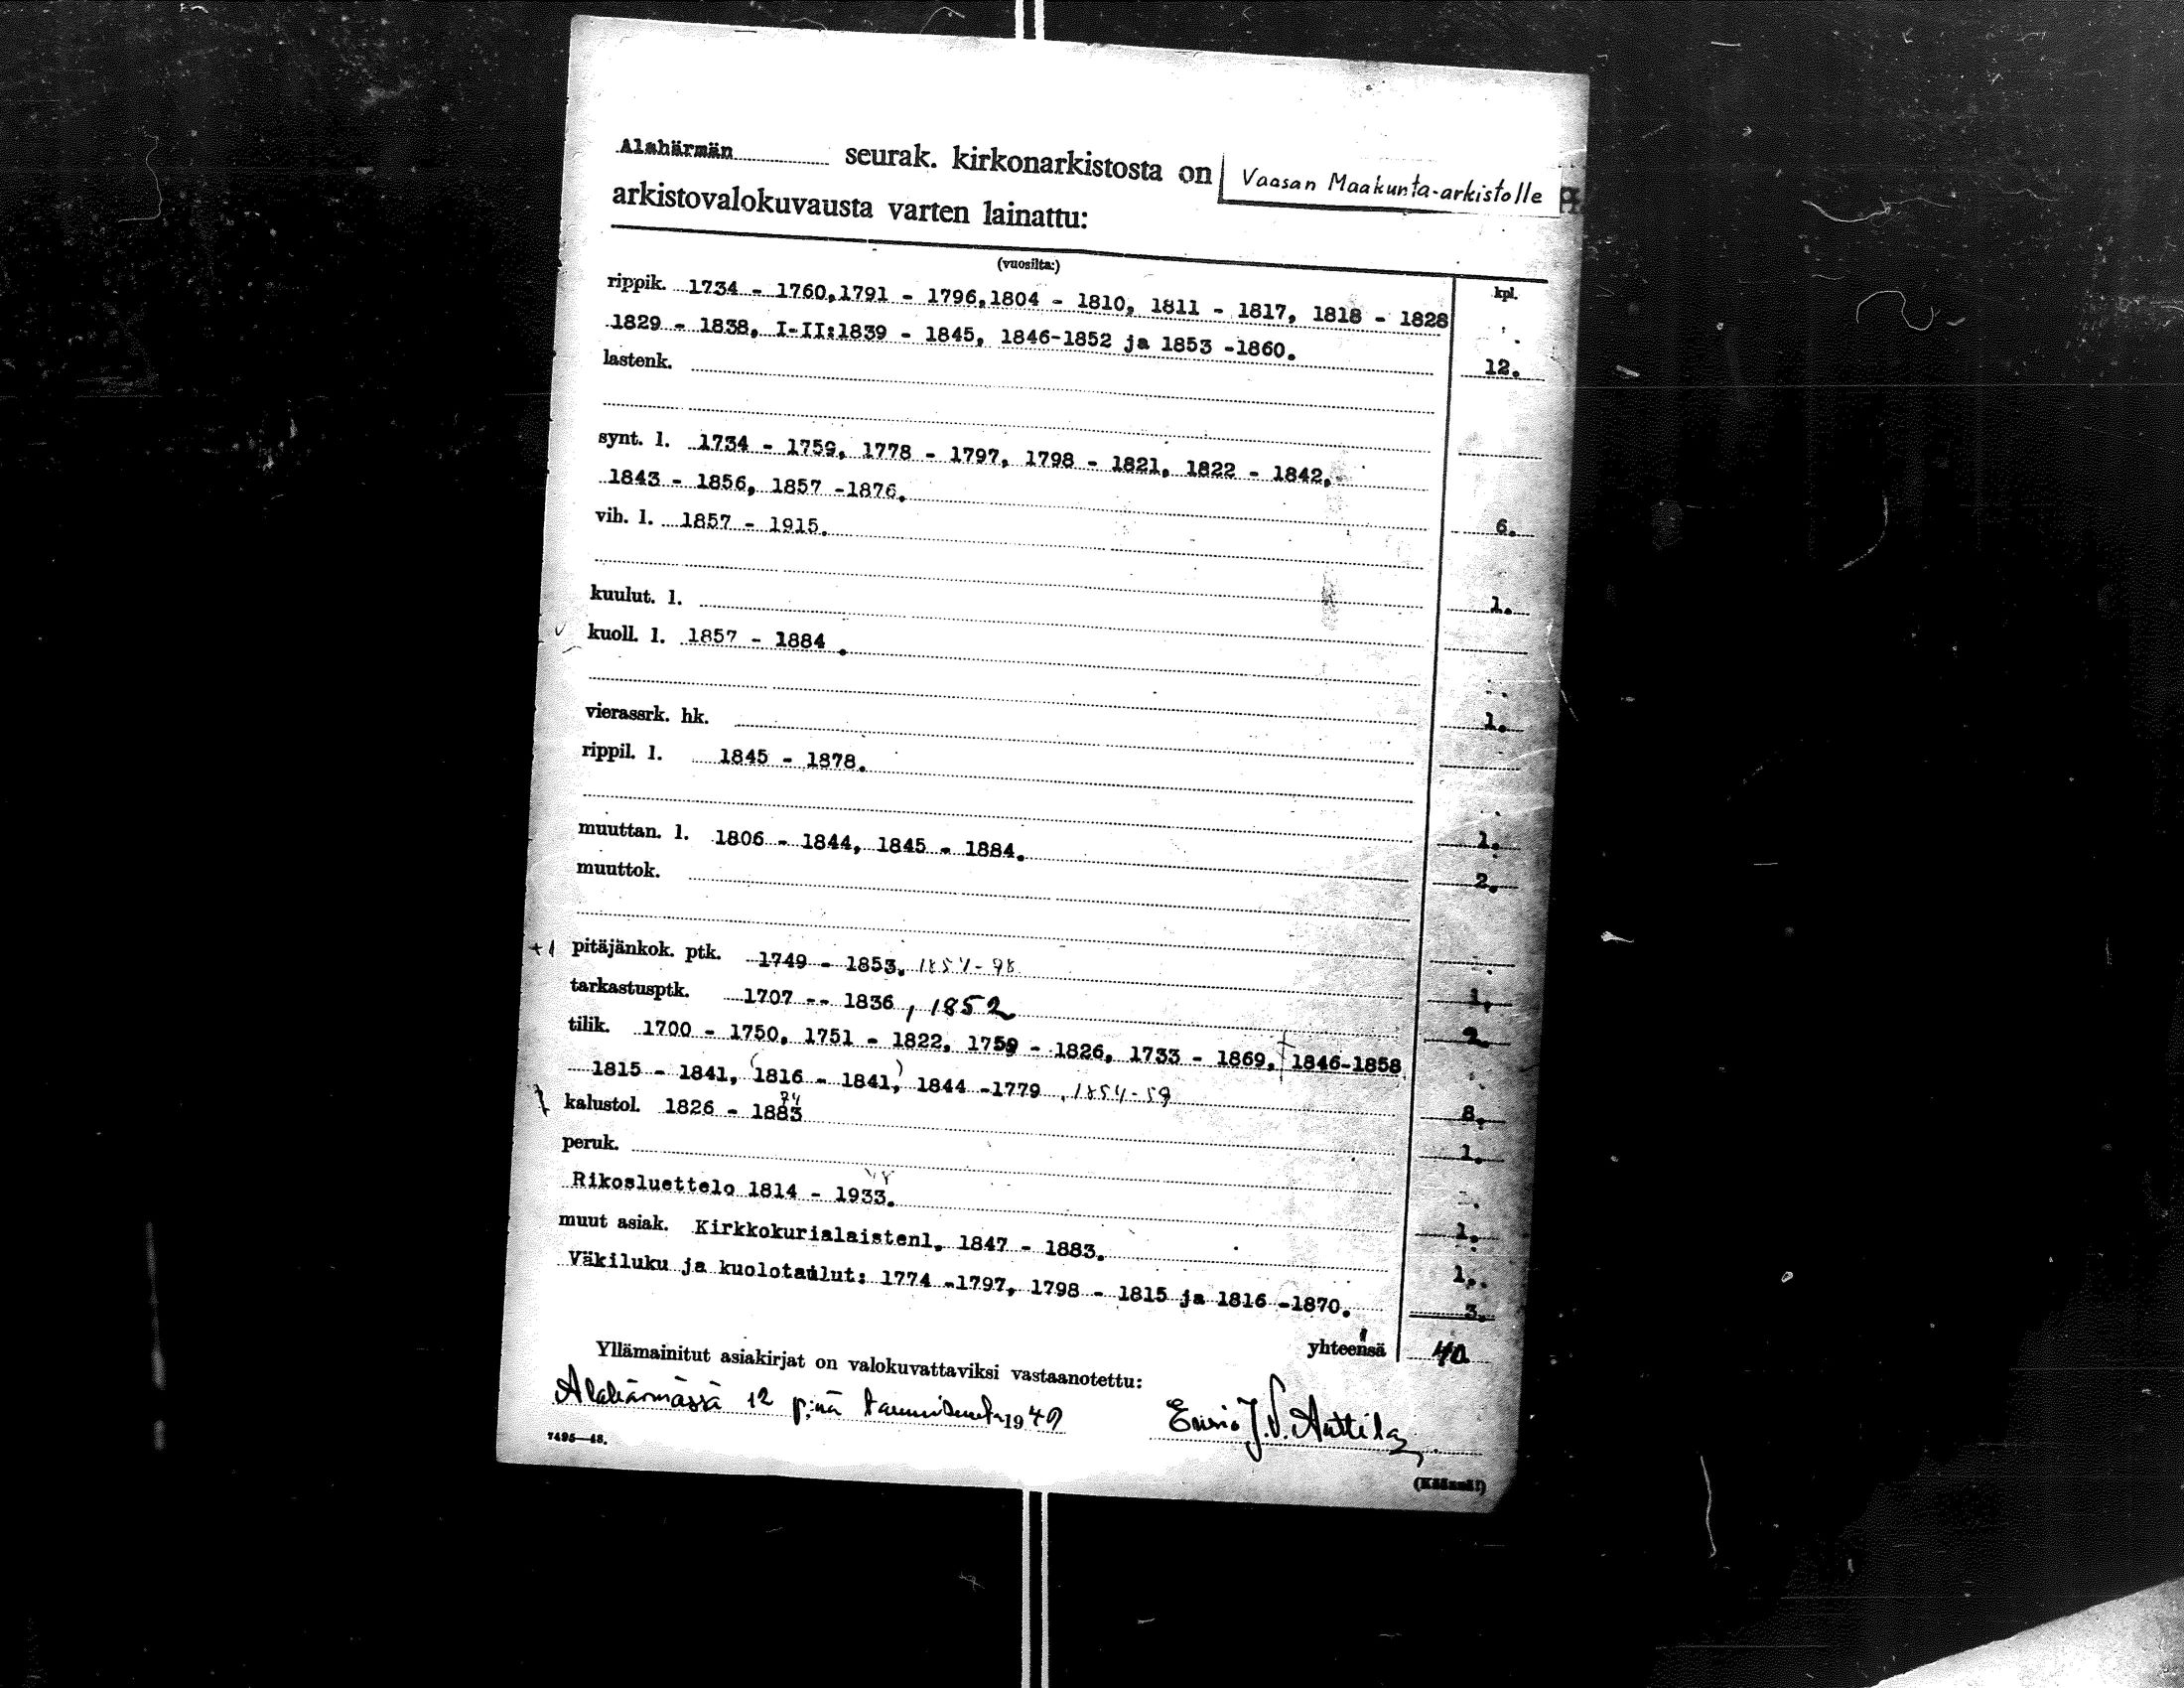 Alahärmän seurak. kirkonarkistosta on Vaasan Maakunta-arkistolle
arkistovalokuvausta varten lainattu:
(vuosilta:) kpl.
rippik. 1734 - 1760, 1791 - 1796, 1804 - 1810, 1811 - 1817, 1818 - 1828
1829 - 1838, I-II:1839 - 1845, 1846-1852 ja 1853 -1860. 12.
lastenk.
synt. l. 1734 - 1759, 1778 - 1797, 1798 - 1821, 1822 - 1842,
1843 - 1856, 1857 -1876. 6.
vih. l. 1857 - 1915.
1.
kuulut. l.
kuoll. l. 1857 - 1884.
1.
vierassrk. hk.
rippil. l. 1845 - 1878.
1.
muuttan. l. 1806 - 1844, 1845 - 1884. 2.
muuttok.
+1 pitäjänkok. ptk. 1749 - 1853. 1.
tarkastusptk. 1707 -- 1836, 1852 2.
tilik. 1700 - 1750, 1751 - 1822, 1759 - 1826, 1733 - 1869, 1846-1858
1815 - 1841, (1816 - 1841,) 1844 -1779, 1854-59 8.
kalustol. 1826 - 1883 1.
peruk.
Rikosluettelo 1814 - 1933. 1.
muut asiak. Kirkkokurialaistenl. 1847 - 1883. 1.
Väkiluku ja kuolotaulut: 1774 -1797, 1798 - 1815 ja 1816 -1870. 3.
yhteensä 40
Yllämainitut asiakirjat on valokuvattaviksi vastaanotettu:
Alahärmässä 12 p:nä tammikuuta 1949
7495—48.
(Käännä!)